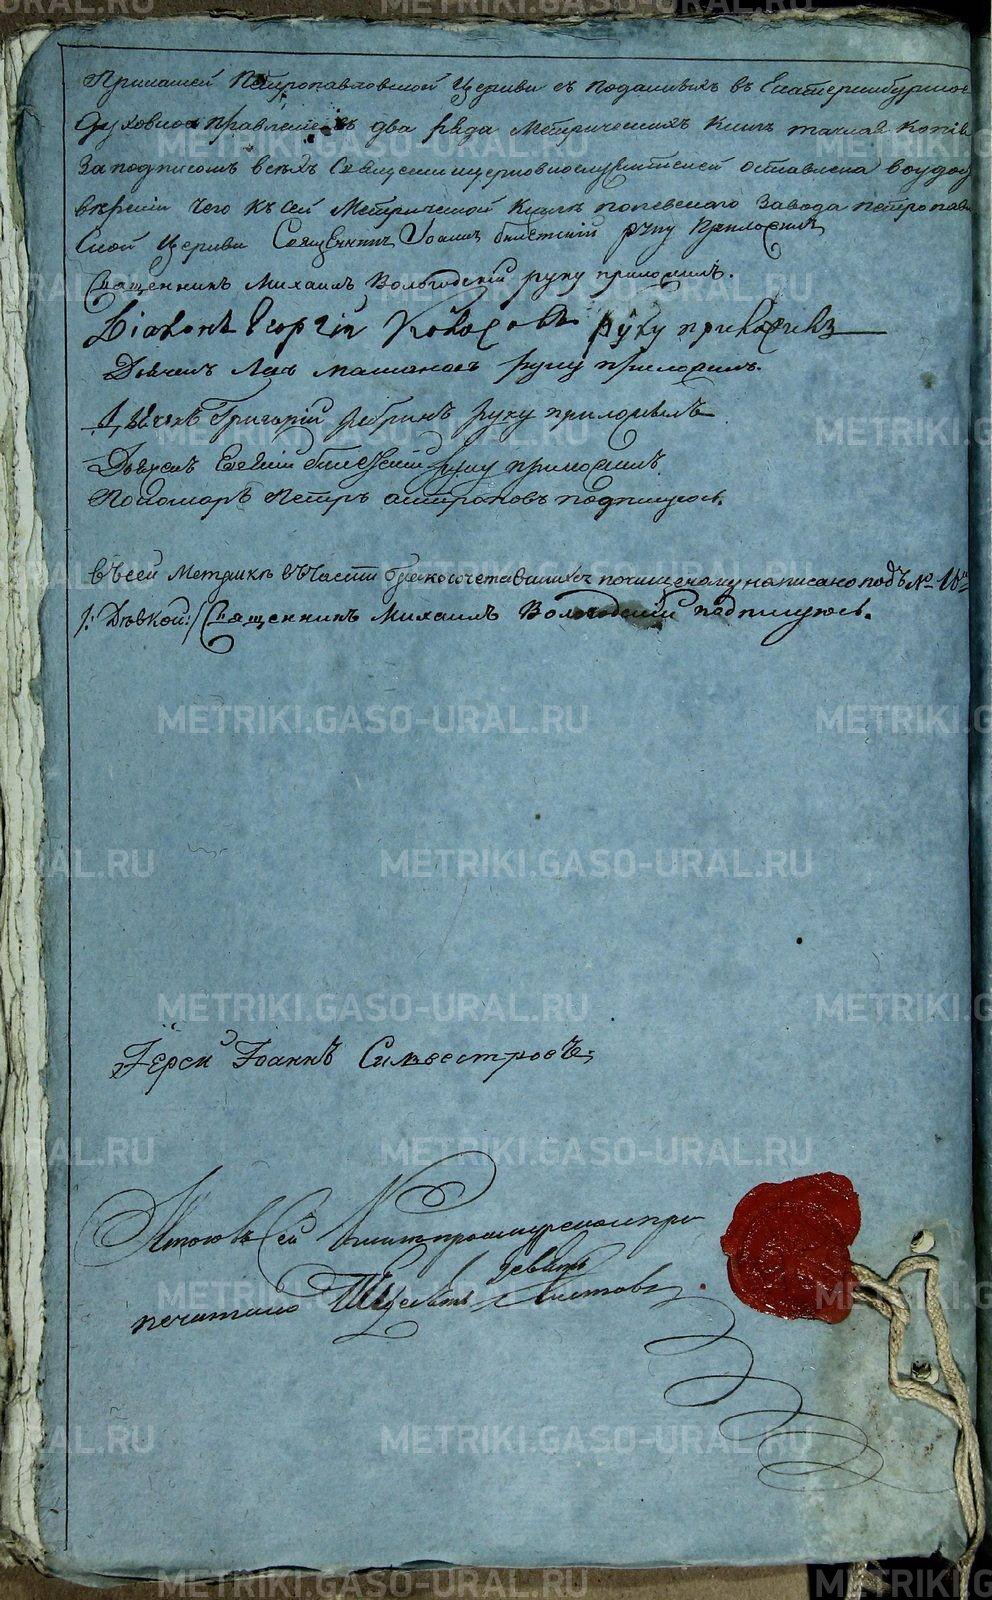 При нашей Петропавловской Церкви съ поданныхъ въ Екатеринбургское
Духовное Правленiе въ два ряда Метрическихъ Книгъ точная Копiя
За подписомъ всѣхъ Священноцерковнослужителей оставлена во удос
вѣренiи чего къ сей Метрической Книгѣ полевскаго Завода петропав
ской Церкви Священникъ Iоаннъ руку Приложилъ
Священникъ Михаилъ Вологодскiй руку приложилъ.
Дiаконъ Георгiй Кокосовъ руку приложилъ
Дьячекъ руку приложилъ.
Дьячекъ Григорiй Ребринъ руку приложилъ
Дьячекъ руку приложилъ
Пономарь Петръ подпишуюсь.
въ сей Метрикѣ въ Части бракосочетавшихся по чищеному написано подъ № 18м
/: Дѣвкой:/ Священникъ Михаилъ Вологодскiй подпишуюсь.
Iерей Iоаннъ Сильвестровъ
Итого въ Сей Книгѣ прошнурено и при
печатано девять Листовъ
METRIKI.GASO-URAL.RU